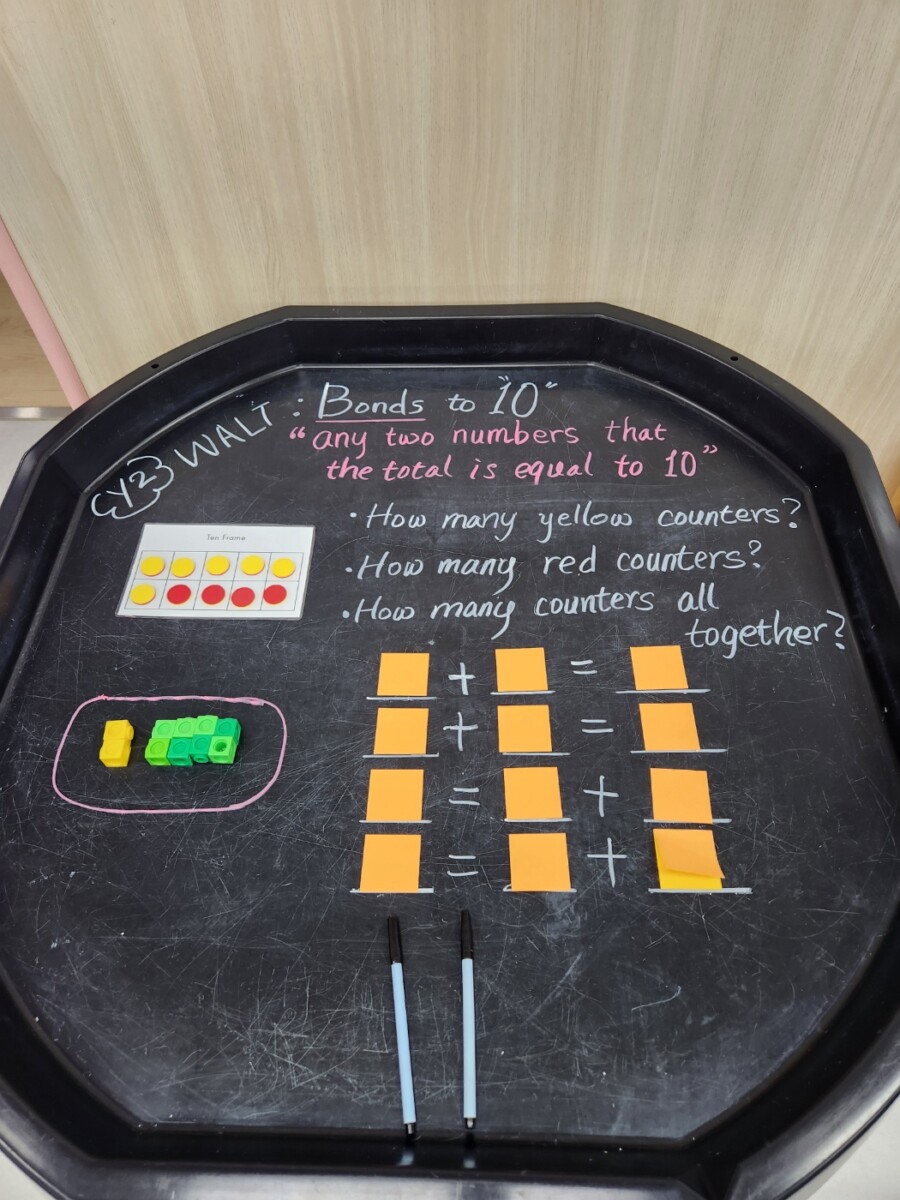 WALT: Bonds to "10"
"any two numbers that
the total is equal to 10"
Y2
• How many yellow counters?
Ten Frame
• How many red counters?
• How many counters all
together?
+ =
+ =
= +
= +